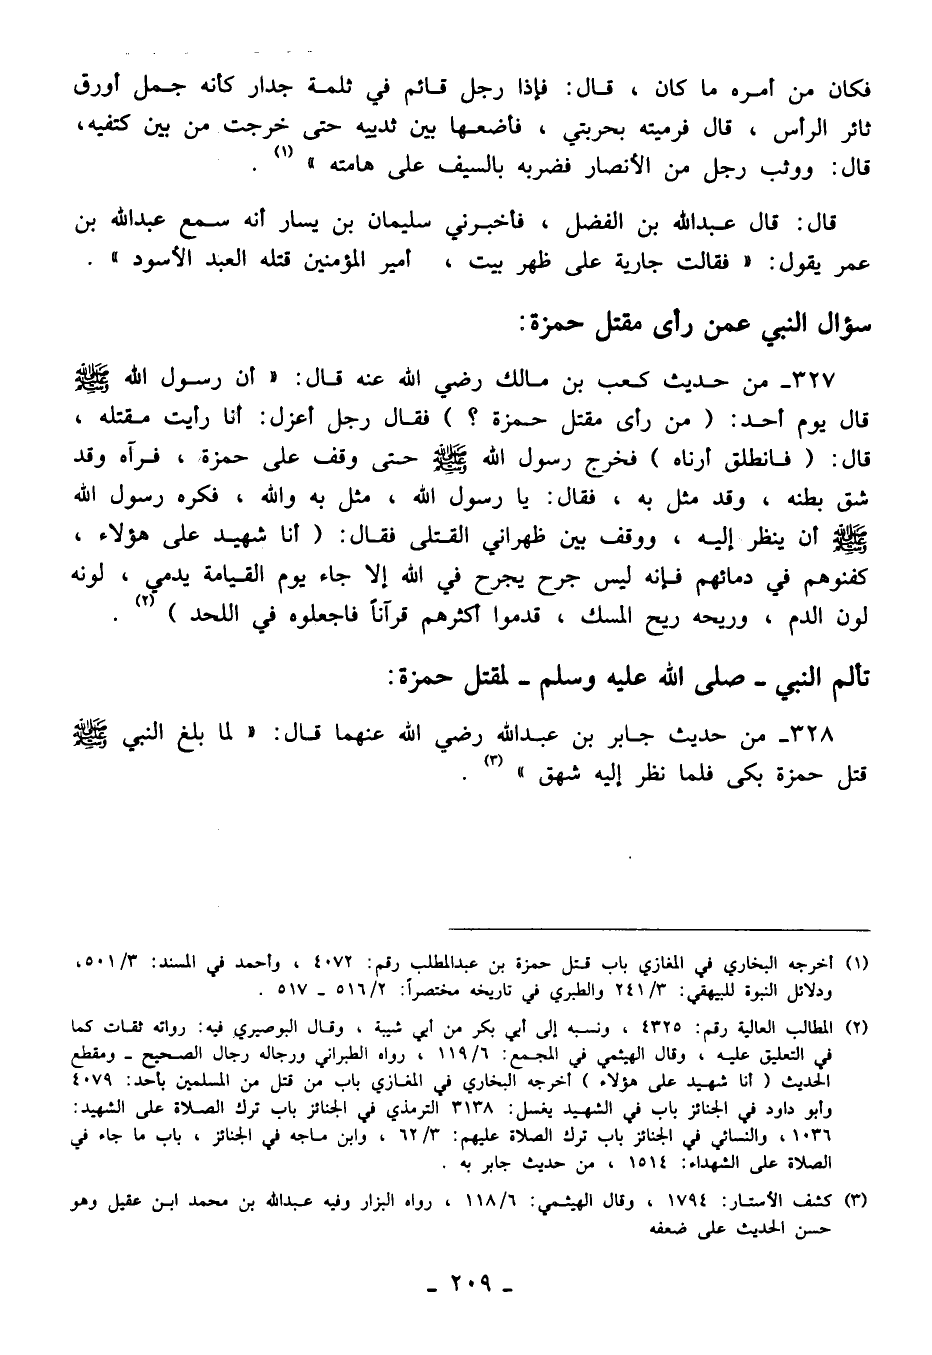 فكان من أمره ما كان ، قال: فإذا رجل قائم في ثلمة جدار كأنه جمل أورق
ثائر الرأس ، قال فرميته بحربتي ، فأضعها بين ثدييه حتى خرجت من بين كتفيه،
قال: ووثب رجل من الأنصار فضربه بالسيف على هامته » (١) .
قال: قال عبدالله بن الفضل ، فأخبرني سليمان بن يسار أنه سمع عبدالله بن
عمر يقول: « فقالت جارية على ظهر بيت ، أمير المؤمنين قتله العبد الأسود » .
سؤال النبي عمن رأى مقتل حمزة:
٣٢٧ـ من حديث كعب بن مالك رضي الله عنه قال: « أن رسول الله ﷺ
قال يوم أحد: ( من رأى مقتل حمزة ؟ ) فقال رجل أعزل: أنا رأيت مقتله ،
قال: ( فانطلق أرناه ) فخرج رسول الله ﷺ حتى وقف على حمزة ، فرآه وقد
شق بطنه ، وقد مثل به ، فقال: يا رسول الله ، مثل به والله ، فكره رسول الله
ﷺ أن ينظر إليه ، ووقف بين ظهراني القتلى فقال: ( أنا شهيد على هؤلاء ،
كفنوهم في دمائهم فإنه ليس جرح يجرح في الله إلا جاء يوم القيامة يدمي ، لونه
لون الدم ، وريحه ريح المسك ، قدموا أكثرهم قرآناً فاجعلوه في اللحد ) (٢) .
تألم النبي ـ صلى الله عليه وسلم ـ لمقتل حمزة:
٣٢٨ـ من حديث جابر بن عبدالله رضي الله عنهما قال: « لما بلغ النبي ﷺ
قتل حمزة بكى فلما نظر إليه شهق » (٣) .
(١) أخرجه البخاري في المغازي باب قتل حمزة بن عبدالمطلب رقم: ٤٠٧٢ ، وأحمد في المسند: ٥٠١/٣،
ودلائل النبوة للبيهقي: ٢٤١/٣ والطبري في تاريخه مختصراً: ٥١٦/٢ ـ ٥١٧ .
(٢) المطالب العالية رقم: ٤٣٢٥ ، ونسبه إلى أبي بكر من أبي شيبة ، وقال البوصيري فيه: رواته ثقات كما
في التعليق عليه ، وقال الهيثمي في المجمع: ١١٩/٦ ، رواه الطبراني ورجاله رجال الصحيح ـ ومقطع
الحديث ( أنا شهيد على هؤلاء ) أخرجه البخاري في المغازي باب من قتل من المسلمين بأحد: ٤٠٧٩
وأبو داود في الجنائز باب في الشهيد يغسل: ٣١٣٨ الترمذي في الجنائز باب ترك الصلاة على الشهيد:
١٠٣٦ ، والنسائي في الجنائز باب ترك الصلاة عليهم: ٦٢/٣ ، وابن ماجه في الجنائز ، باب ما جاء في
الصلاة على الشهداء: ١٥١٤ ، من حديث جابر به .
(٣) كشف الأستار: ١٧٩٤ ، وقال الهيثمي: ١١٨/٦ ، رواه البزار وفيه عبدالله بن محمد ابن عقيل وهو
حسن الحديث على ضعفه
ـ ٢٠٩ ـ